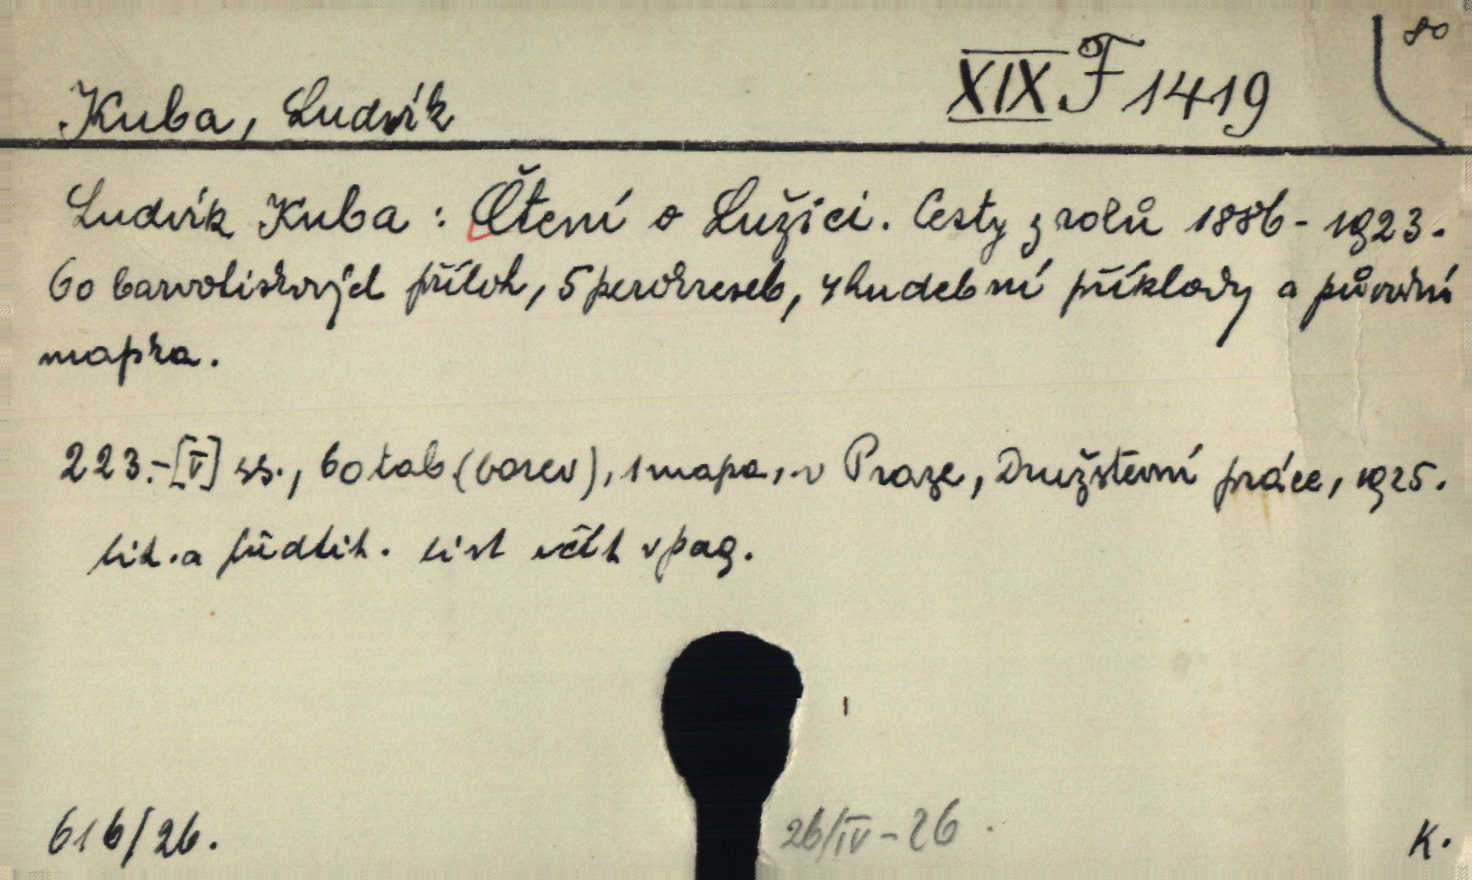 80
XIX F 1419
Kuba, Ludvík
Ludvík Kuba: Čtení o Lužici. Cesty z roků 1886-1923.
60 barvotiskových příloh, 5 perokreseb, 4 hudební příklady a původní
mapka.
223.-[V] ss., 60 tab (barev), 1 mapa, v Praze, Družstevní práce, 1925.
tit. a předtit. list v pag.
616/26.
26/IV-26.
K.